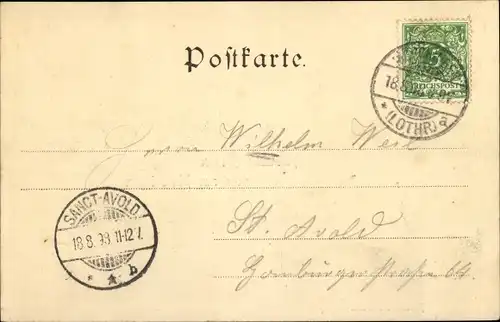 Postkarte.
5
REICHSPOST
18.8
* (LOTHR) a
Herrn Wilhelm Weil
SANCT-AVOLD.
18.8.98.11-12V.
* b
St. Avold
Homburgerstraße 64